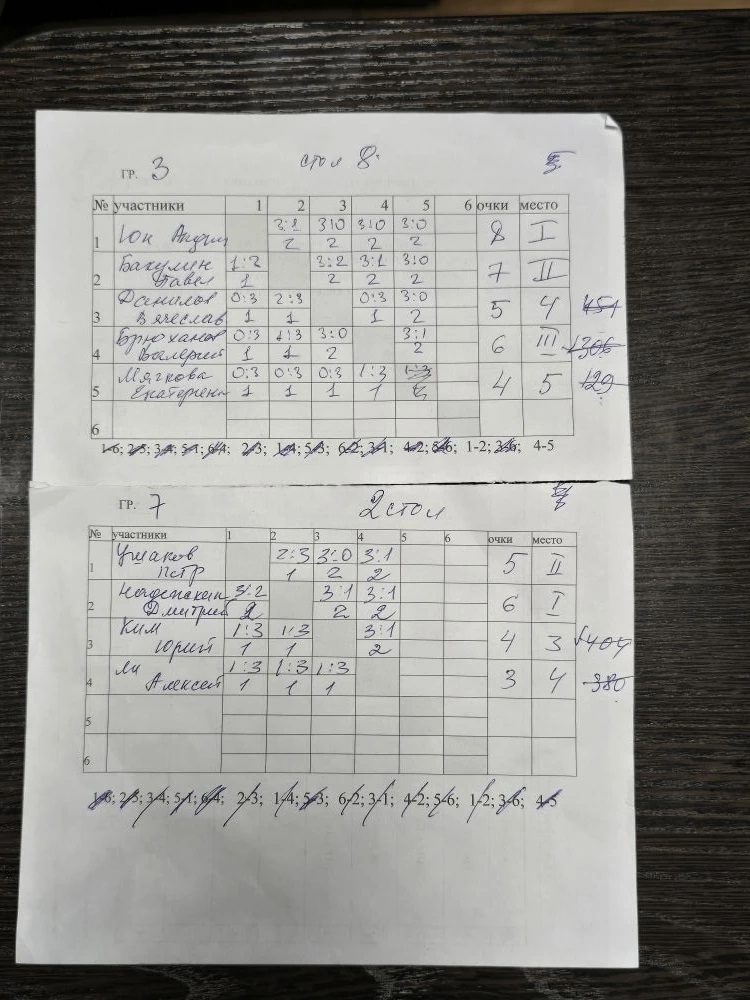 ГР. 3 стол 8.
№ участники 1 2 3 4 5 6 очки место
3:1 3:0 3:0 3:0
1 Юн 2 2 2 2 8 I
Бакулин 1:2 3:2 3:1 3:0
2 Павел 1 2 2 2 7 II
Данилов 0:3 2:3 0:3 3:0
3 Вячеслав 1 1 1 2 5 4 451
Брюханов 0:3 1:3 3:0 3:1
4 Валерий 1 1 2 2 6 III 1306
Мягкова 0:3 0:3 0:3 1:3
5 Екатерина 1 1 1 1 4 5 129
6
1-6; 2-5; 3-4; 5-1; 6-4; 2-3; 1-4; 5-3; 6-2; 3-1; 4-2; 5-6; 1-2; 3-6; 4-5
ГР. 7 2 стол
№ участники 1 2 3 4 5 6 очки место
Ушаков 2:3 3:0 3:1
1 Петр 1 2 2 5 II
3:2 3:1 3:1
2 Дмитрий 2 2 2 6 I
Ким 1:3 1:3 3:1
3 Юрий 1 1 2 4 3 404
Ли 1:3 1:3 1:3
4 Алексей 1 1 1 3 4 380
5
6
1-6; 2-5; 3-4; 5-1; 6-4; 2-3; 1-4; 5-3; 6-2; 3-1; 4-2; 5-6; 1-2; 3-6; 4-5